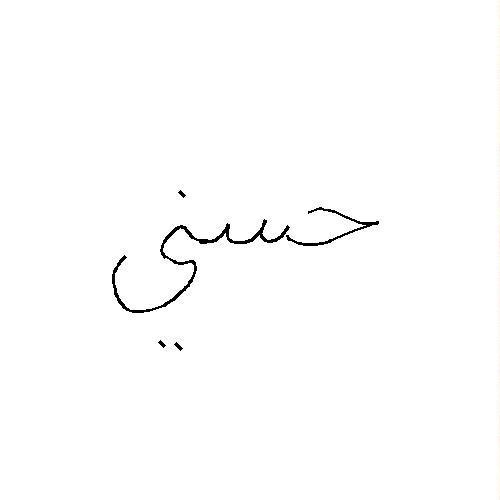 حسني